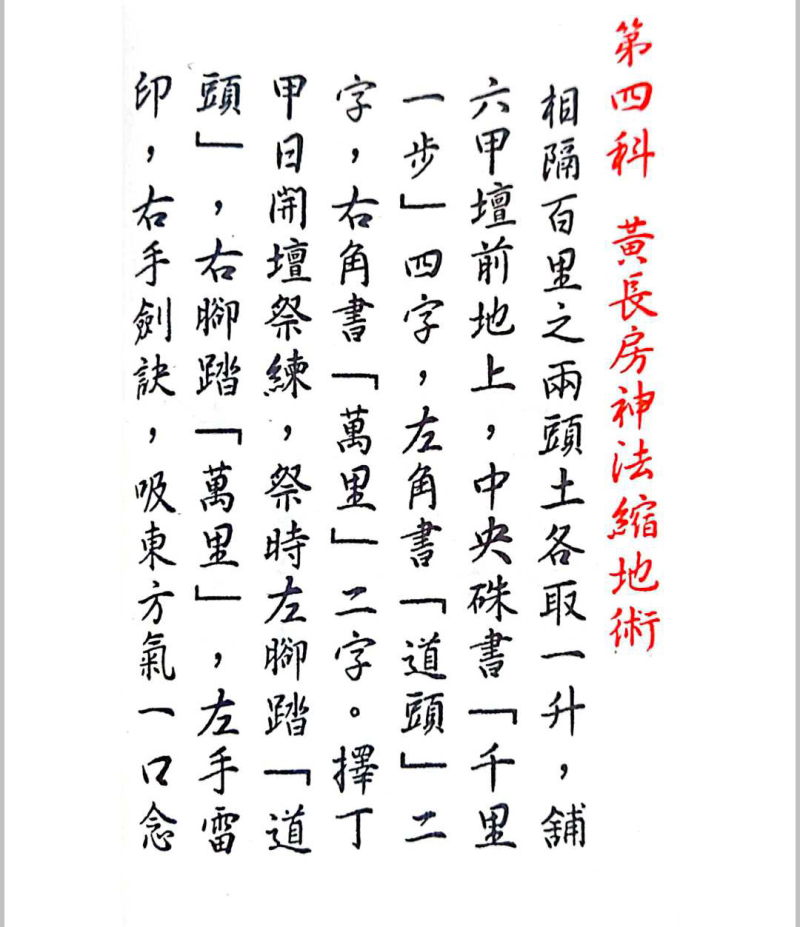 第四科 黃長房神法縮地術
相隔百里之兩頭土各取一升，舖
六甲壇前地上，中央硃書「千里
一步」四字，左角書「道頭」二
字，右角書「萬里」二字。擇丁
甲日開壇祭練，祭時左腳踏「道
頭」，右腳踏「萬里」，左手雷
印，右手劍訣，吸東方氣一口念